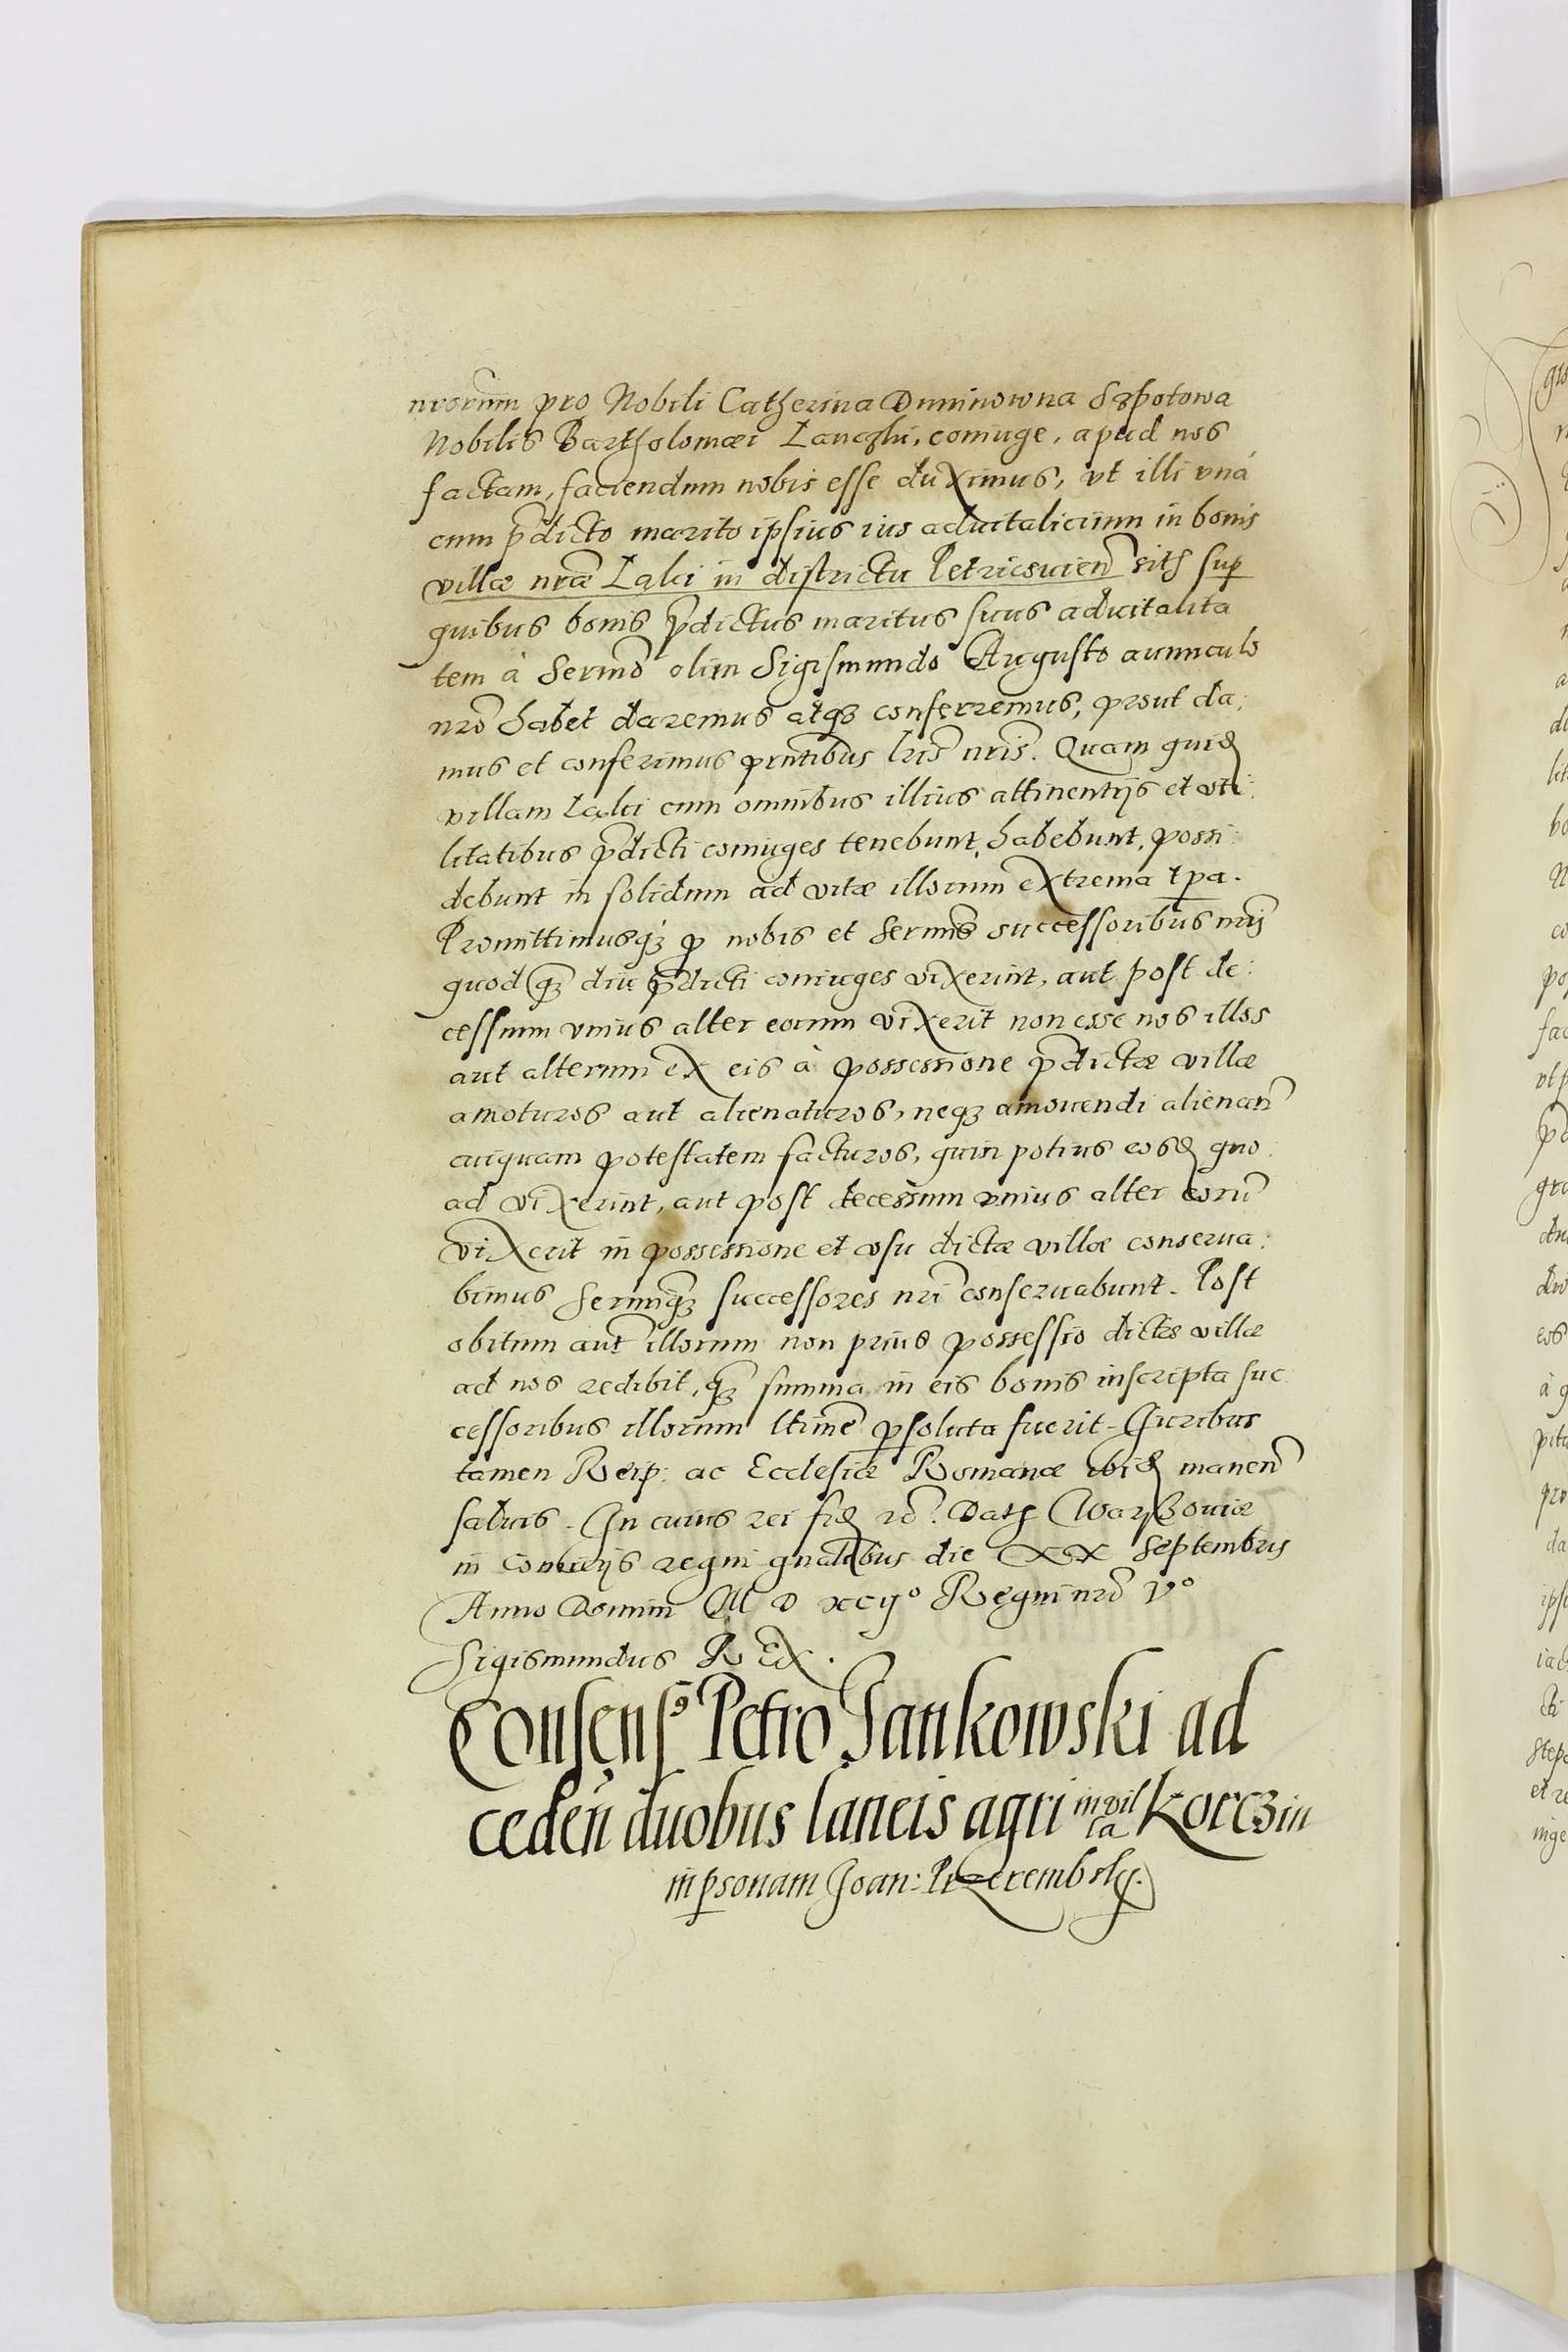 nrorum pro Nobili Catherina Duninowna Szpotowa
Nobilis Bartholomæi coniuge, apud nos
factam, faciendum nobis esse duximus, vt illi vná
cum pdicto marito ipsius ius aduitalicium in bonis
villæ nræ Łąki in districtu Petricouien sith sup
quibus bonis pdictus maritus suus aduitalita
tem à Sermo olim Sigismundo Augusto auunculo
nro habet daremus atqz conferremus, prout da:
mus et conferimus pntibus lris nris. Quam quid
villam Łąki cum omnibus illius attinentijs et vti:
litatibus pdicti coniuges tenebunt, habebunt, possi:
debunt in solidum ad vitæ illorum extrema tpa.
Promittimusqz p nobis et Sermis successoribus nris
quod qz diu pdicti coniuges vixerint, aut post de:
cessum vnius alter eorum vixerit non esse nos illos
aut alterum ex eis à possessione pdictæ villæ
amoturos aut alienaturos, neqz amouendi alienan
cuiquam potestatem facturos, quin potius eosd quo
ad vixerint, aut post decessum vnius alter eoru
vixerit in possessione et vsu dictæ villæ conserua:
bimus Sermiqz successores nri conseruabunt. Post
obitum aut illorum non prius possessio dictæ villæ
ad nos redibit, qz summa in eis bonis inscripta suc
cessoribus illorum ltime psoluta fuerit. Iuribus
tamen Reip: ac Ecclesiæ Romanæ ibid manen
saluis. In cuius rei fid rc. Dath Warssouiæ
in Comicijs regni gnalibus die XX Septembris
Anno Domini M D xcij° Regni nro V°
Sigismundus REX.
Consens9 Petro Jankowski ad
ceden duobus laneis agri in vil
la Korczin
in psonam Joan: Przerembskj.